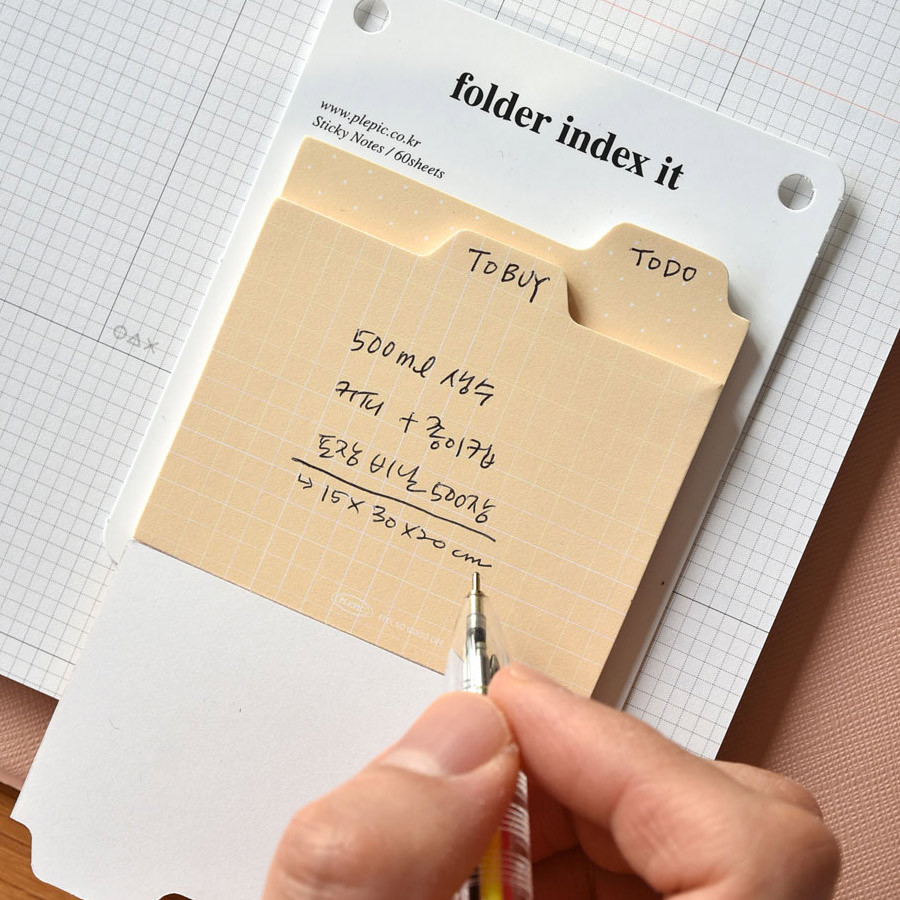 folder index it
www.plepic.co.kr
Sticky Notes / 60sheets
TO DO
TO BUY
500ml 생수
커피 + 종이컵
포장 비닐 500장
↳ 15 x 30 x 20 cm
PLEPIC